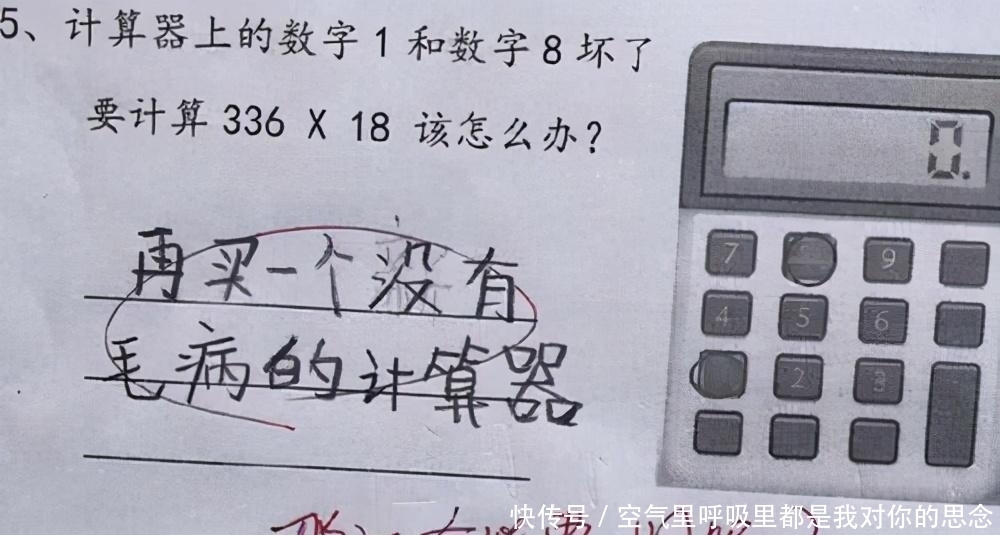 5、计算器上的数字1和数字8坏了
要计算336 X 18 该怎么办?
再买一个没有
毛病的计算器
0.
7 9
4 5 6
2 3
快传号 / 空气里呼吸里都是我对你的思念